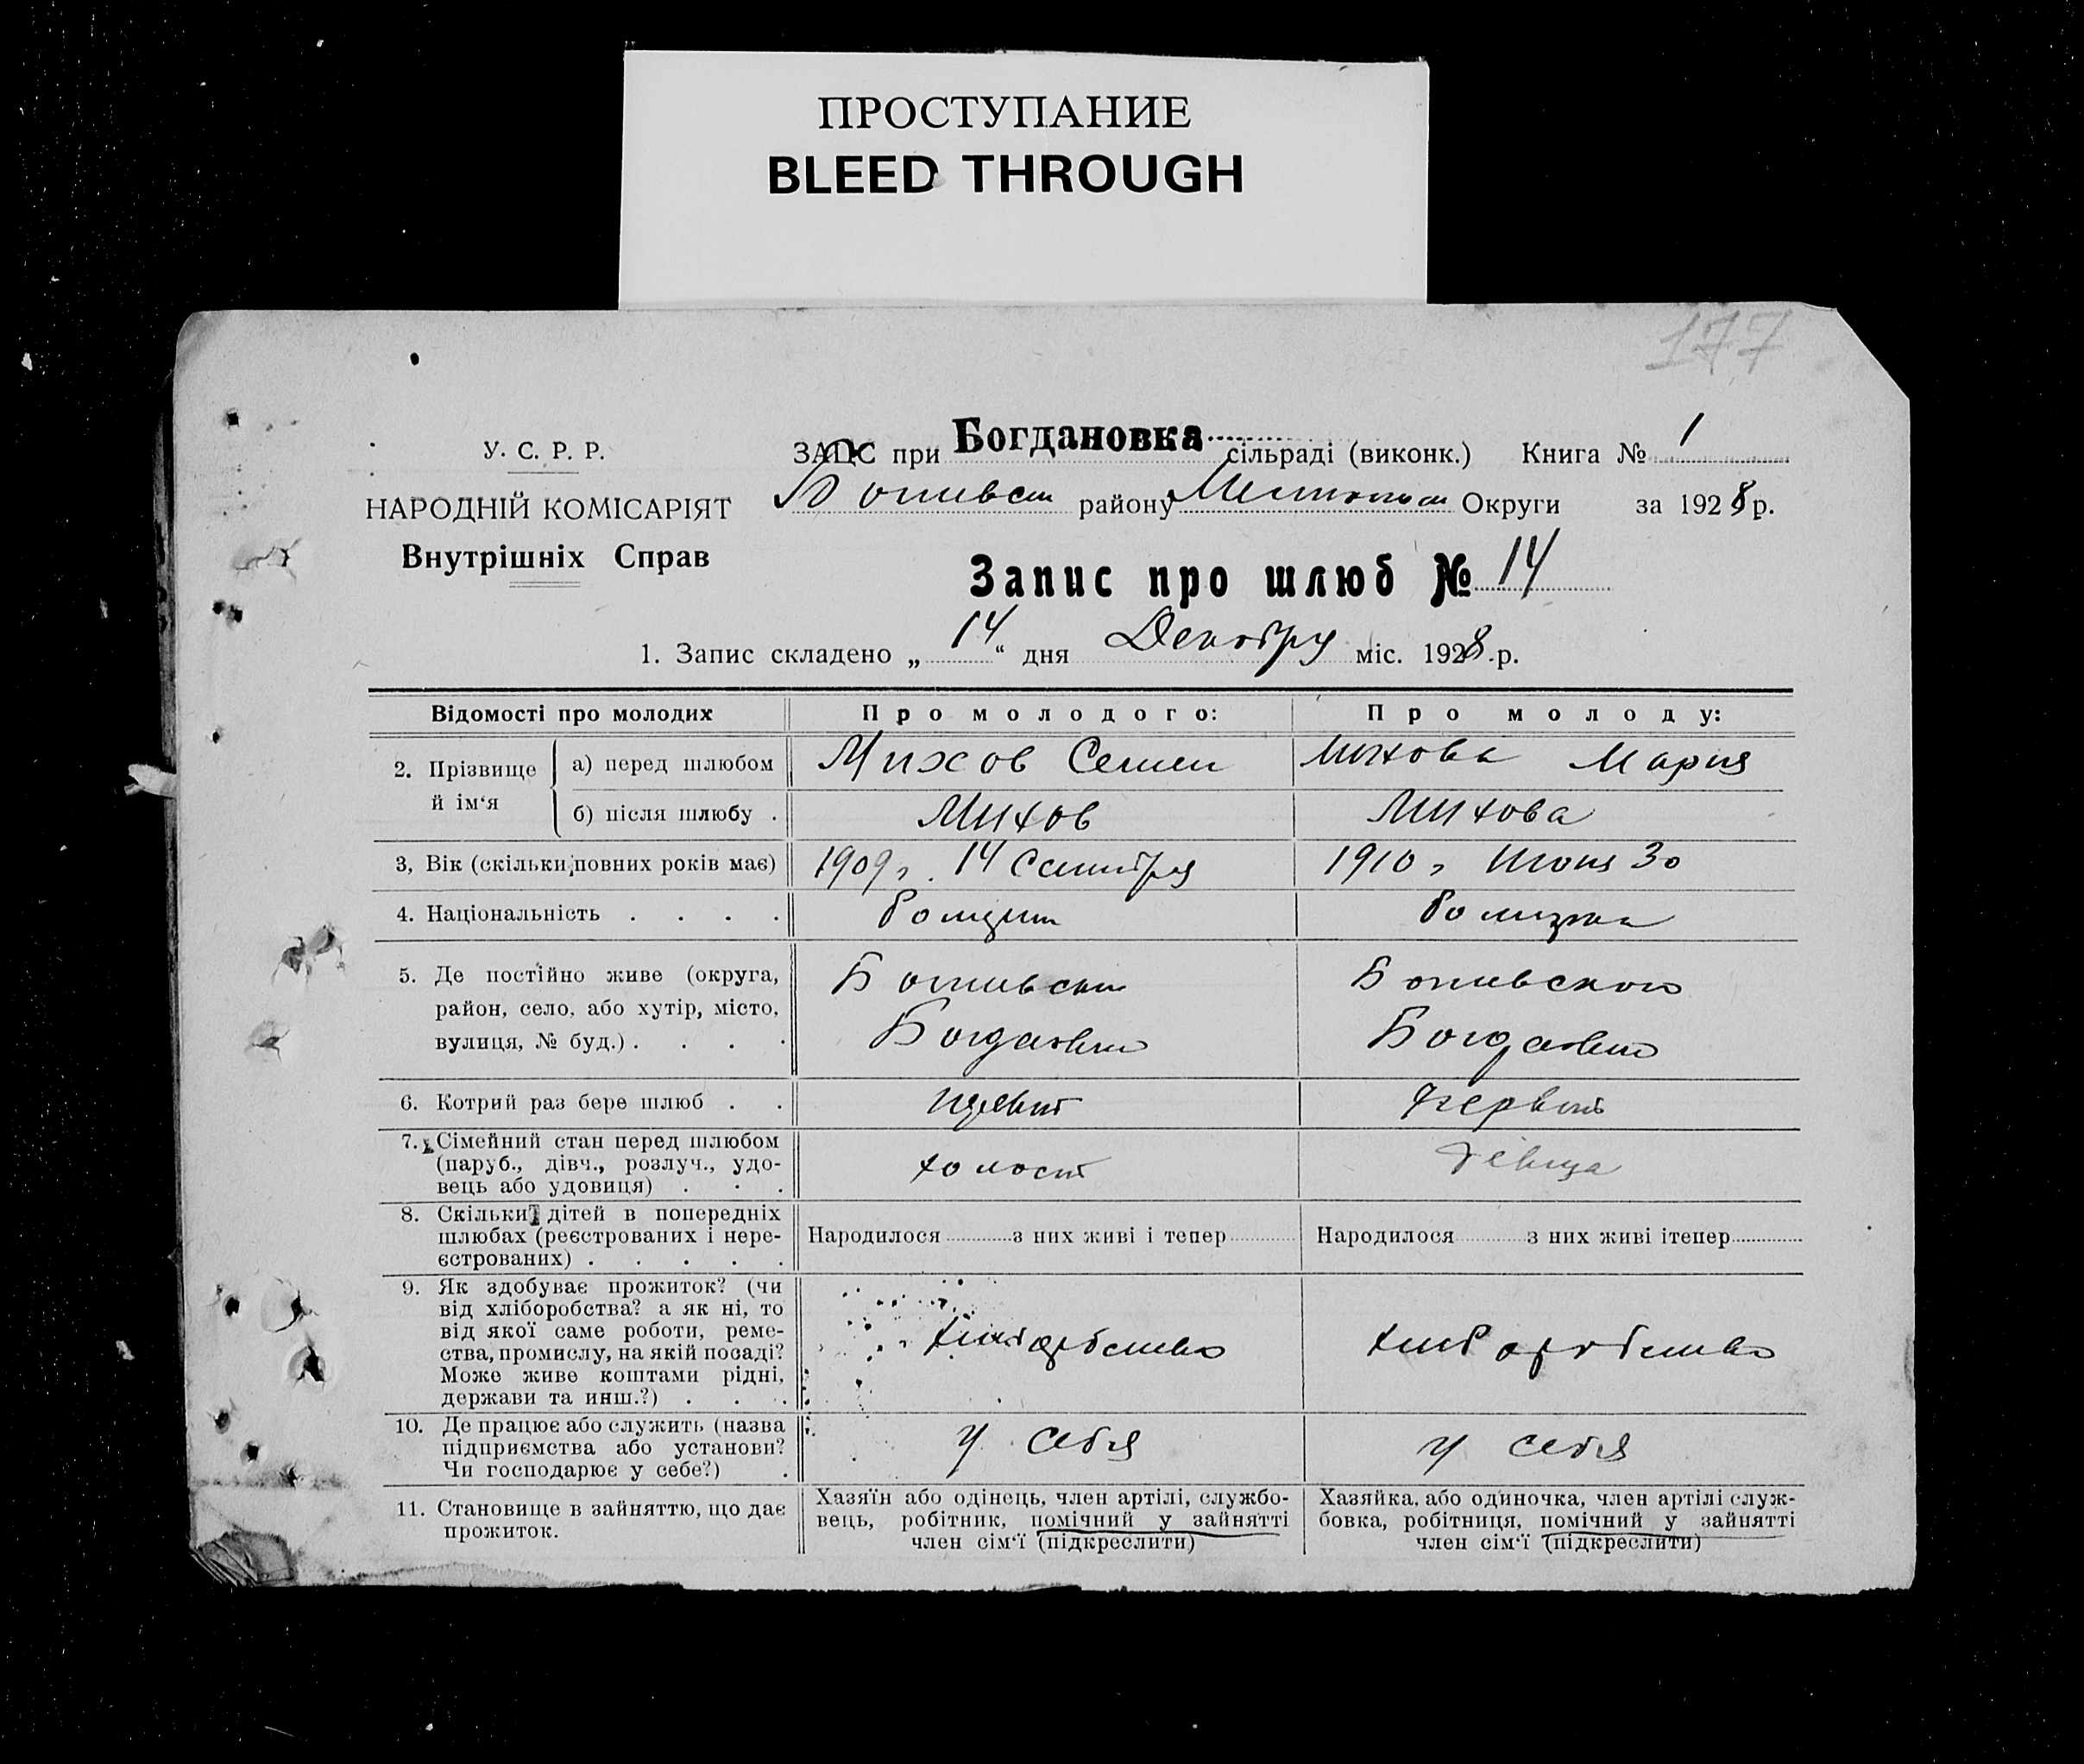 ПРОСТУПАНИЕ
BLEED THROUGH
177
У. С. Р. Р.
НАРОДНІЙ КОМІСАРІЯТ
Внутрішніх Справ
ЗАГС при Богдановка сільраді (виконк.) Книга № 1
району Округи за 1928 р.
Запис про шлюб № 14
1. Запис складено „ 14 “ дня Декабря міс. 1928 р.
Відомості про молодих
Про молодого:
Про молоду:
2. Прізвище й ім‘я
а) перед шлюбом
Михов Семен
Михова Мария
б) після шлюбу .
Михов
Михова
3, Вік (скільки повних років має)
1909 г. 14 Сентября
1910 г Июня 30
4. Національність . . . .
5. Де постійно живе (округа,
район, село, або хутір, місто,
вулиця, № буд.) . . . .
Ботивского
6. Котрий раз бере шлюб . .
первый
7. Сімейний стан перед шлюбом
(паруб., дівч., розлуч., удо-
вець або удовиця) . . .
холост
девица
8. Скільки дітей в попередніх
шлюбах (реєстрованих і нере-
єстрованих) . . . . .
Народилося з них живі і тепер
Народилося з них живі ітепер
9. Як здобуває прожиток? (чи
від хліборобства? а як ні, то
від якої саме роботи, реме-
ства, промислу, на якій посаді?
Може живе коштами рідні,
держави та инш.?) . . .
10. Де працює або служить (назва
підприємства або установи?
Чи господарює у себе?) .
у себя
у себя
11. Становище в зайняттю, що дає
прожиток.
Хазяїн або одінець, член артілі, службо-
вець, робітник, помічний у зайнятті
член сім‘ї (підкреслити)
Хазяйка, або одиночка, член артілі служ-
бовка, робітниця, помічний у зайнятті
член сім‘ї (підкреслити)